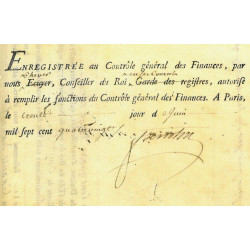 ENREGISTRÉE au Contrôle général des Finances, par
nous Eager, Conseiller du Roi, Garde des registres, autorisé
à remplir les fonctions du Contrôle général des Finances. A Paris,
le jour d Juin
mil sept cent quatrevingt